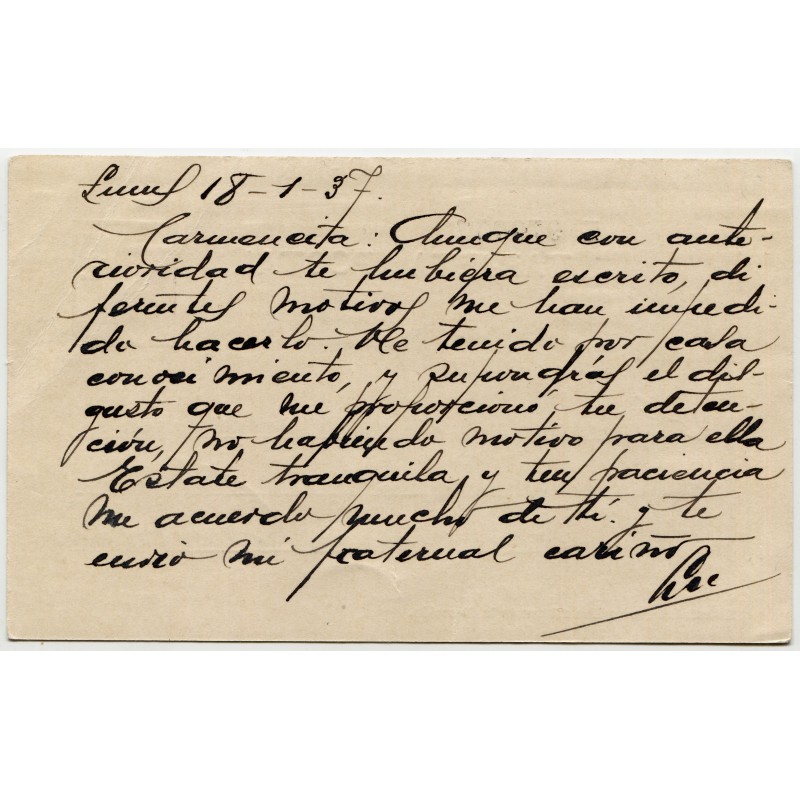 Lunes 18-1-37.
Carmencita: Aunque con ante-
rioridad te hubiera escrito, di
ferentes motivos me han impedi-
do hacerlo. He tenido por casa
conocimiento, y supondrás el dis-
gusto que me proporcionó, tu deten-
ción, no habiendo motivo para ella
Estate tranquila, y ten paciencia
me acuerdo mucho de tí. y te
envio mi fraternal cariño